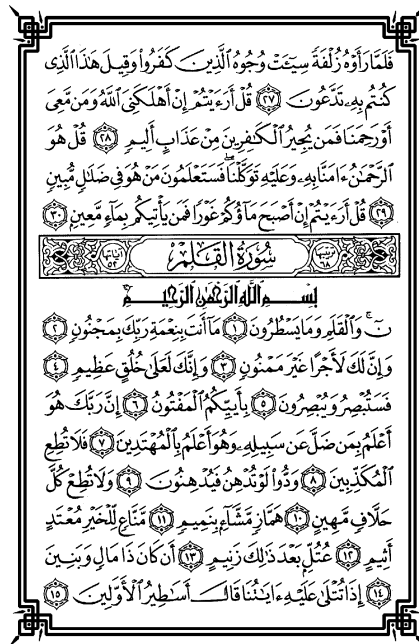 فَلَمَّا رَأَوْهُ زُلْفَةً سِيٓـَٔتْ وُجُوهُ ٱلَّذِينَ كَفَرُوا۟ وَقِيلَ هَٰذَا ٱلَّذِى
كُنتُم بِهِۦ تَدَّعُونَ ٢٧ قُلْ أَرَءَيْتُمْ إِنْ أَهْلَكَنِىَ ٱللَّهُ وَمَن مَّعِىَ
أَوْ رَحِمَنَا فَمَن يُجِيرُ ٱلْكَٰفِرِينَ مِنْ عَذَابٍ أَلِيمٍ ٢٨ قُلْ هُوَ
ٱلرَّحْمَٰنُ ءَامَنَّا بِهِۦ وَعَلَيْهِ تَوَكَّلْنَا ۖ فَسَتَعْلَمُونَ مَنْ هُوَ فِى ضَلَٰلٍ مُّبِينٍ
٢٩ قُلْ أَرَءَيْتُمْ إِنْ أَصْبَحَ مَآؤُكُمْ غَوْرًا فَمَن يَأْتِيكُم بِمَآءٍ مَّعِينٍۭ ٣٠
ترتيبها ٦٨ سُورَةُ ٱلْقَلَمِ آياتها ٥٢
بِسْمِ ٱللَّهِ ٱلرَّحْمَٰنِ ٱلرَّحِيمِ
نٓ ۚ وَٱلْقَلَمِ وَمَا يَسْطُرُونَ ١ مَآ أَنتَ بِنِعْمَةِ رَبِّكَ بِمَجْنُونٍ ٢
وَإِنَّ لَكَ لَأَجْرًا غَيْرَ مَمْنُونٍ ٣ وَإِنَّكَ لَعَلَىٰ خُلُقٍ عَظِيمٍ ٤
فَسَتُبْصِرُ وَيُبْصِرُونَ ٥ بِأَييِّكُمُ ٱلْمَفْتُونُ ٦ إِنَّ رَبَّكَ هُوَ
أَعْلَمُ بِمَن ضَلَّ عَن سَبِيلِهِۦ وَهُوَ أَعْلَمُ بِٱلْمُهْتَدِينَ ٧ فَلَا تُطِعِ
ٱلْمُكَذِّبِينَ ٨ وَدُّوا۟ لَوْ تُدْهِنُ فَيُدْهِنُونَ ٩ وَلَا تُطِعْ كُلَّ
حَلَّافٍ مَّهِينٍ ١٠ هَمَّازٍ مَّشَّآءٍۭ بِنَمِيمٍ ١١ مَّنَّاعٍ لِّلْخَيْرِ مُعْتَدٍ
أَثِيمٍ ١٢ عُتُلٍّۭ بَعْدَ ذَٰلِكَ زَنِيمٍ ١٣ أَن كَانَ ذَا مَالٍ وَبَنِينَ
١٤ إِذَا تُتْلَىٰ عَلَيْهِ ءَايَٰتُنَا قَالَ أَسَٰطِيرُ ٱلْأَوَّلِينَ ١٥